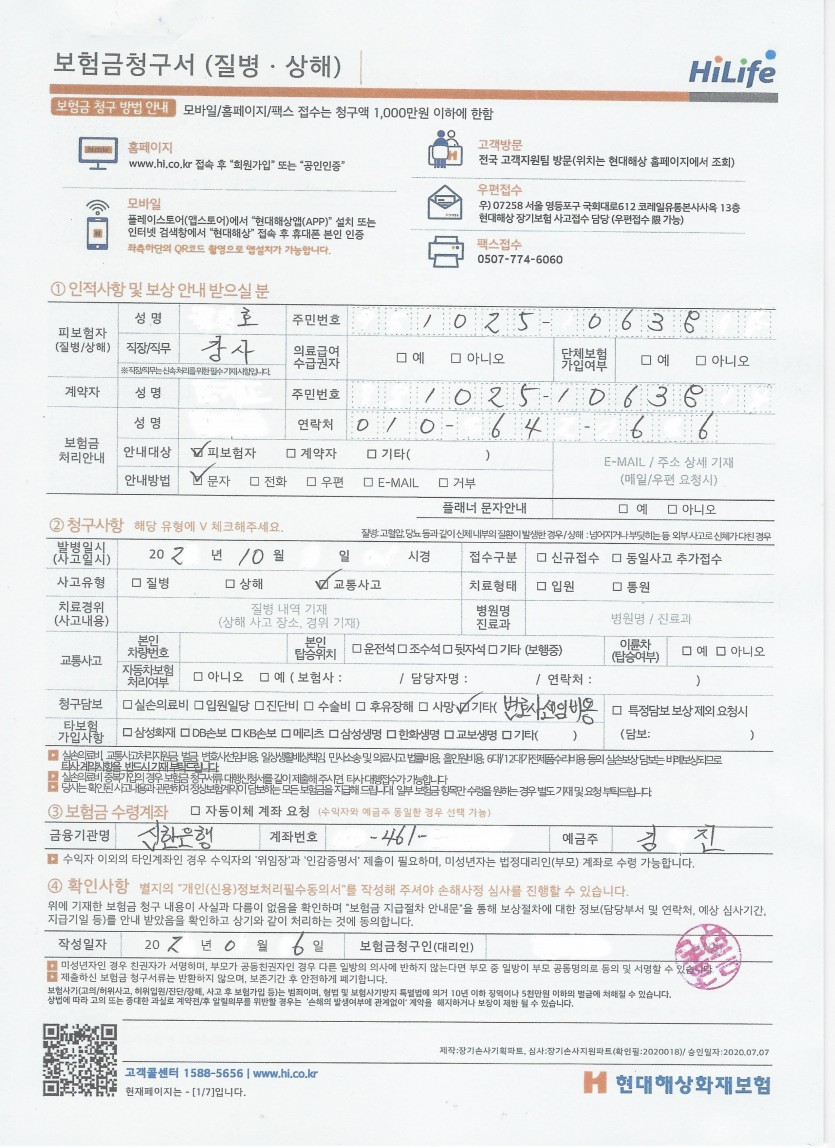 보험금청구서 (질병 · 상해)
HiLife
보험금 청구 방법 안내 모바일/홈페이지/팩스 접수는 청구액 1,000만원 이하에 한함
홈페이지
www.hi.co.kr 접속 후 "회원가입" 또는 "공인인증"
고객방문
전국 고객지원팀 방문(위치는 현대해상 홈페이지에서 조회)
모바일
플레이스토어(앱스토어)에서 "현대해상앱(APP)" 설치 또는
인터넷 검색창에서 "현대해상" 접속 후 휴대폰 본인 인증
좌측하단의 QR코드 촬영으로 앱설치가 가능합니다.
우편접수
우) 07258 서울 영등포구 국회대로612 코레일유통본사사옥 13층
현대해상 장기보험 사고접수 담당 (우편접수 限 가능)
팩스접수
0507-774-6060
① 인적사항 및 보상 안내 받으실 분
피보험자 (질병/상해) 성 명 호 주민번호 1025-1063
직장/직무 강사 의료급여 수급권자 □ 예 □ 아니오 단체보험 가입여부 □ 예 □ 아니오
※직장/직무는 신속 처리를 위한 필수 기재사항입니다.
계약자 성 명 주민번호 1025-1063
보험금 처리안내 성 명 연락처 010- 64 - 6 6
안내대상 ☑ 피보험자 □ 계약자 □ 기타( ) E-MAIL / 주소 상세 기재
안내방법 ☑ 문자 □ 전화 □ 우편 □ E-MAIL □ 거부 (메일/우편 요청시)
플래너 문자안내 □ 예 □ 아니오
② 청구사항 해당 유형에 V 체크해주세요. 질병: 고혈압, 당뇨 등과 같이 신체 내부의 질환이 발생한 경우 / 상해 : 넘어지거나 부딪히는 등 외부 사고로 신체가 다친 경우
발병일시 (사고일시) 20 2 년 10 월 일 시경 접수구분 □ 신규접수 □ 동일사고 추가접수
사고유형 □ 질병 □ 상해 ☑ 교통사고 치료형태 □ 입원 □ 통원
치료경위 (사고내용) 질병 내역 기재 (상해 사고 장소, 경위 기재) 병원명 진료과 병원명 / 진료과
교통사고 본인 차량번호 본인 탑승위치 □ 운전석 □ 조수석 □ 뒷자석 □ 기타 (보행중) 이륜차 (탑승여부) □ 예 □ 아니오
자동차보험 처리여부 □ 아니오 □ 예 ( 보험사 : / 담당자명 : / 연락처 : )
청구담보 □ 실손의료비 □ 입원일당 □ 진단비 □ 수술비 □ 후유장해 □ 사망 ☑ 기타( 변호사선임비용 ) □ 특정담보 보상 제외 요청시
타보험 가입사항 □ 삼성화재 □ DB손보 □ KB손보 □ 메리츠 □ 삼성생명 □ 한화생명 □ 교보생명 □ 기타( ) (담보: )
실손의료비, 교통사고처리지원금, 벌금, 변호사선임비용, 일상생활배상책임, 민사소송 및 의료사고 법률비용, 홀인원비용, 6대/12대가전제품수리비용 등의 실손보상 담보는 비례보상되므로
타사 계약사항을 반드시 기재 부탁드립니다.
실손의료비 중복가입의 경우 보험금 청구서류 대행신청서를 같이 제출해 주시면, 타사 대행접수가 가능합니다.
당사는 확인된 사고내용과 관련하여 정상보험계약이 담보하는 모든 보험금을 지급해 드립니다. 일부 보험금 항목만 수령을 원하는 경우 별도 기재 및 요청 부탁드립니다.
③ 보험금 수령계좌 □ 자동이체 계좌 요청 (수익자와 예금주 동일한 경우 선택 가능)
금융기관명 신한은행 계좌번호 -461- 예금주 김 진
수익자 이외의 타인계좌인 경우 수익자의 '위임장'과 '인감증명서' 제출이 필요하며, 미성년자는 법정대리인(부모) 계좌로 수령 가능합니다.
④ 확인사항 별지의 "개인(신용)정보처리필수동의서"를 작성해 주셔야 손해사정 심사를 진행할 수 있습니다.
위에 기재한 보험금 청구 내용이 사실과 다름이 없음을 확인하며 "보험금 지급절차 안내문"을 통해 보상절차에 대한 정보(담당부서 및 연락처, 예상 심사기간,
지급기일 등)를 안내 받았음을 확인하고 상기와 같이 처리하는 것에 동의합니다.
작성일자 20 2 년 0 월 6 일 보험금청구인(대리인)
미성년자인 경우 친권자가 서명하며, 부모가 공동친권자인 경우 다른 일방의 의사에 반하지 않는다면 부모 중 일방이 부모 공동명의로 동의 및 서명할 수 있습니다.
제출하신 보험금 청구서류는 반환하지 않으며, 보존기간 후 안전하게 폐기합니다.
보험사기(고의/허위사고, 허위입원/진단/장해, 사고 후 보험가입 등)는 범죄이며, 형법 및 보험사기방지 특별법에 의거 10년 이하 징역이나 5천만원 이하의 벌금에 처해질 수 있습니다.
상법에 따라 고의 또는 중대한 과실로 계약전/후 알릴의무를 위반할 경우는 '손해의 발생여부에 관계없이' 계약을 해지하거나 보장이 제한 될 수 있습니다.
제작:장기손사기획파트, 심사:장기손사지원파트(확인필:2020018)/ 승인일자:2020.07.07
고객콜센터 1588-5656 | www.hi.co.kr
현재페이지는 - [1/7]입니다.
현대해상화재보험